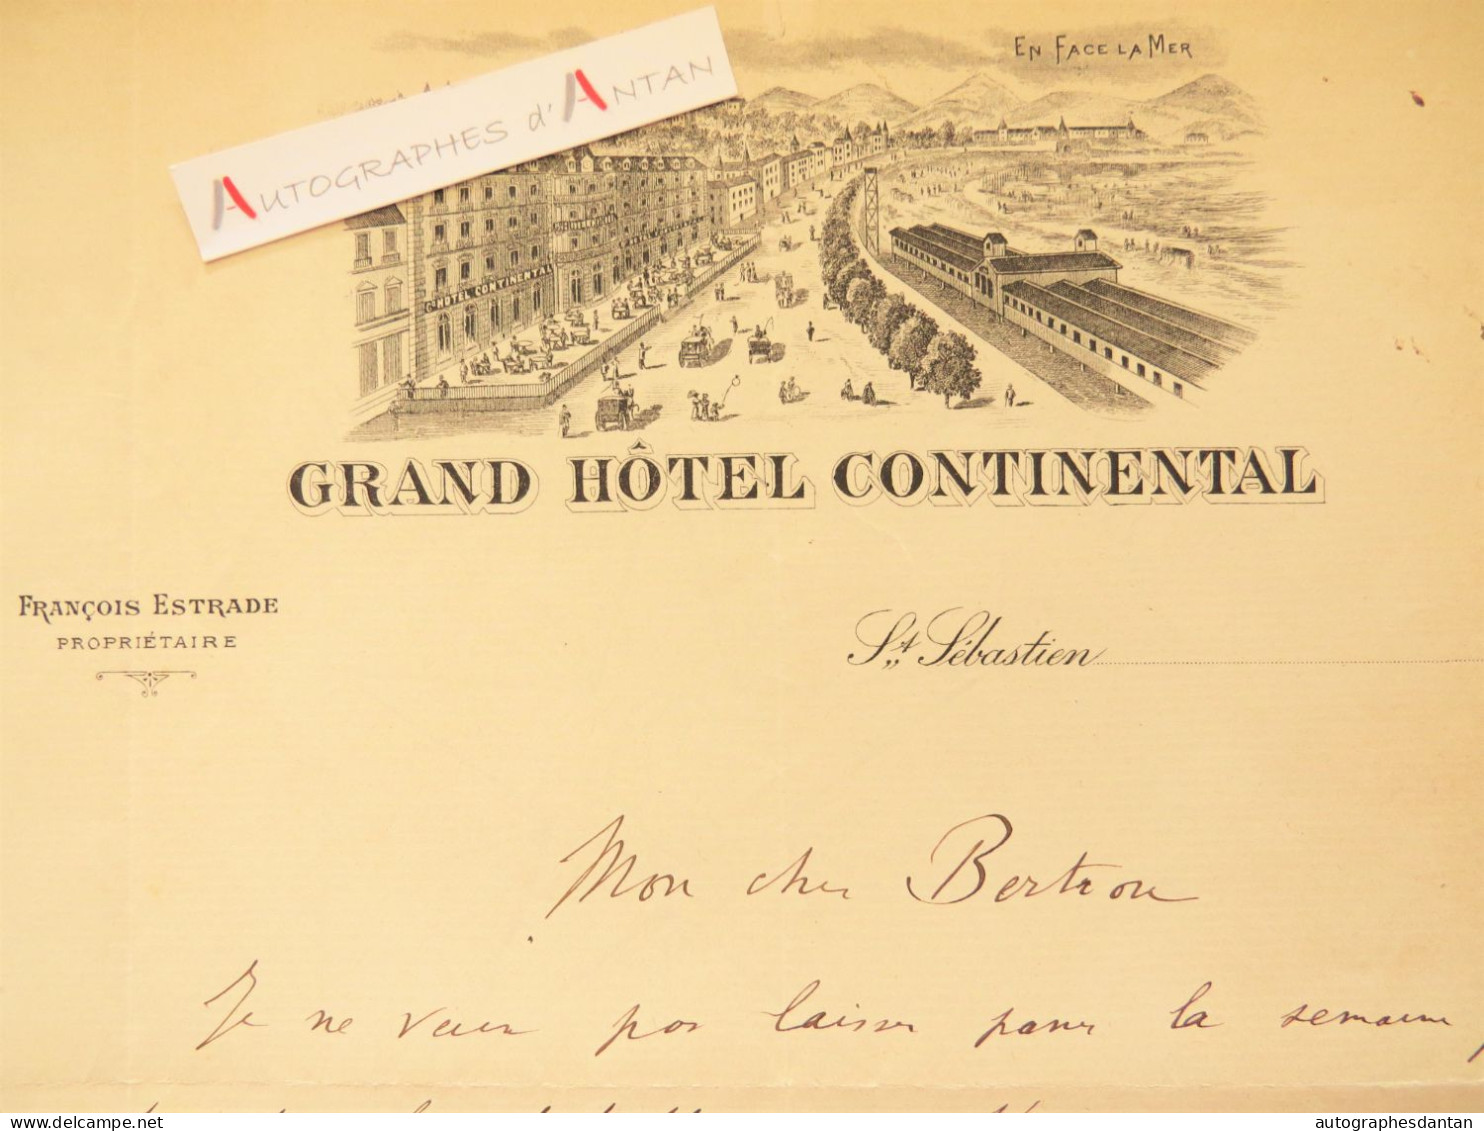 AUTOGRAPHES d'ANTAN
EN FACE LA MER
GD HÔTEL CONTINENTAL
GRAND HÔTEL CONTINENTAL
FRANÇOIS ESTRADE
PROPRIÉTAIRE
St Sébastien
Mon cher Bertrou
Je ne veux pas laisser passer la semaine,
autographesdantan